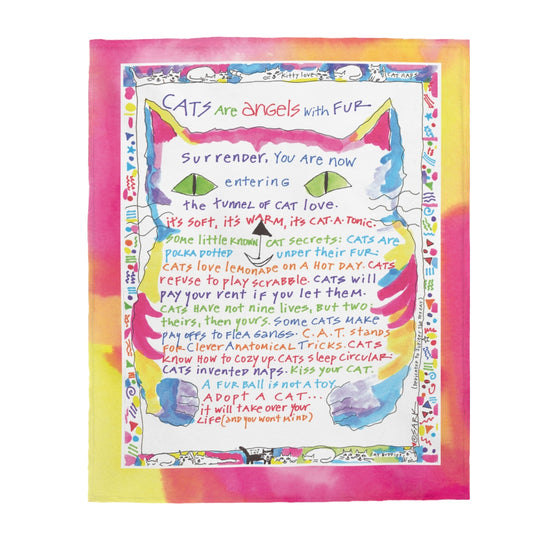 Kitty love
CAT NAPS
CATS Are angels with FUR
Surrender, You are now
entering
the tunnel of cat love.
it's soft, it's WARM, its CAT·A·TONIC.
some little known CAT secrets: CATS ARE
POLKA DOTTED under their FUR.
CATS love lemonade on A HOT DAY. CATS
refuse to play scrabble. CATS will
pay your rent if you let them.
CATS HAVE not nine lives, BUT two:
theirs, then yours. Some CATS MAKE
PAY offs to Flea GANGS. C.A.T. stands
for Clever Anatomical Tricks. CATS
know How to cozy up. CATS sleep circular.
CATS invented NAPS. Kiss your CAT.
A FUR BALL is not A toy.
ADOPT A CAT...
it will take over your
Life (and you wont mind)
©SARK